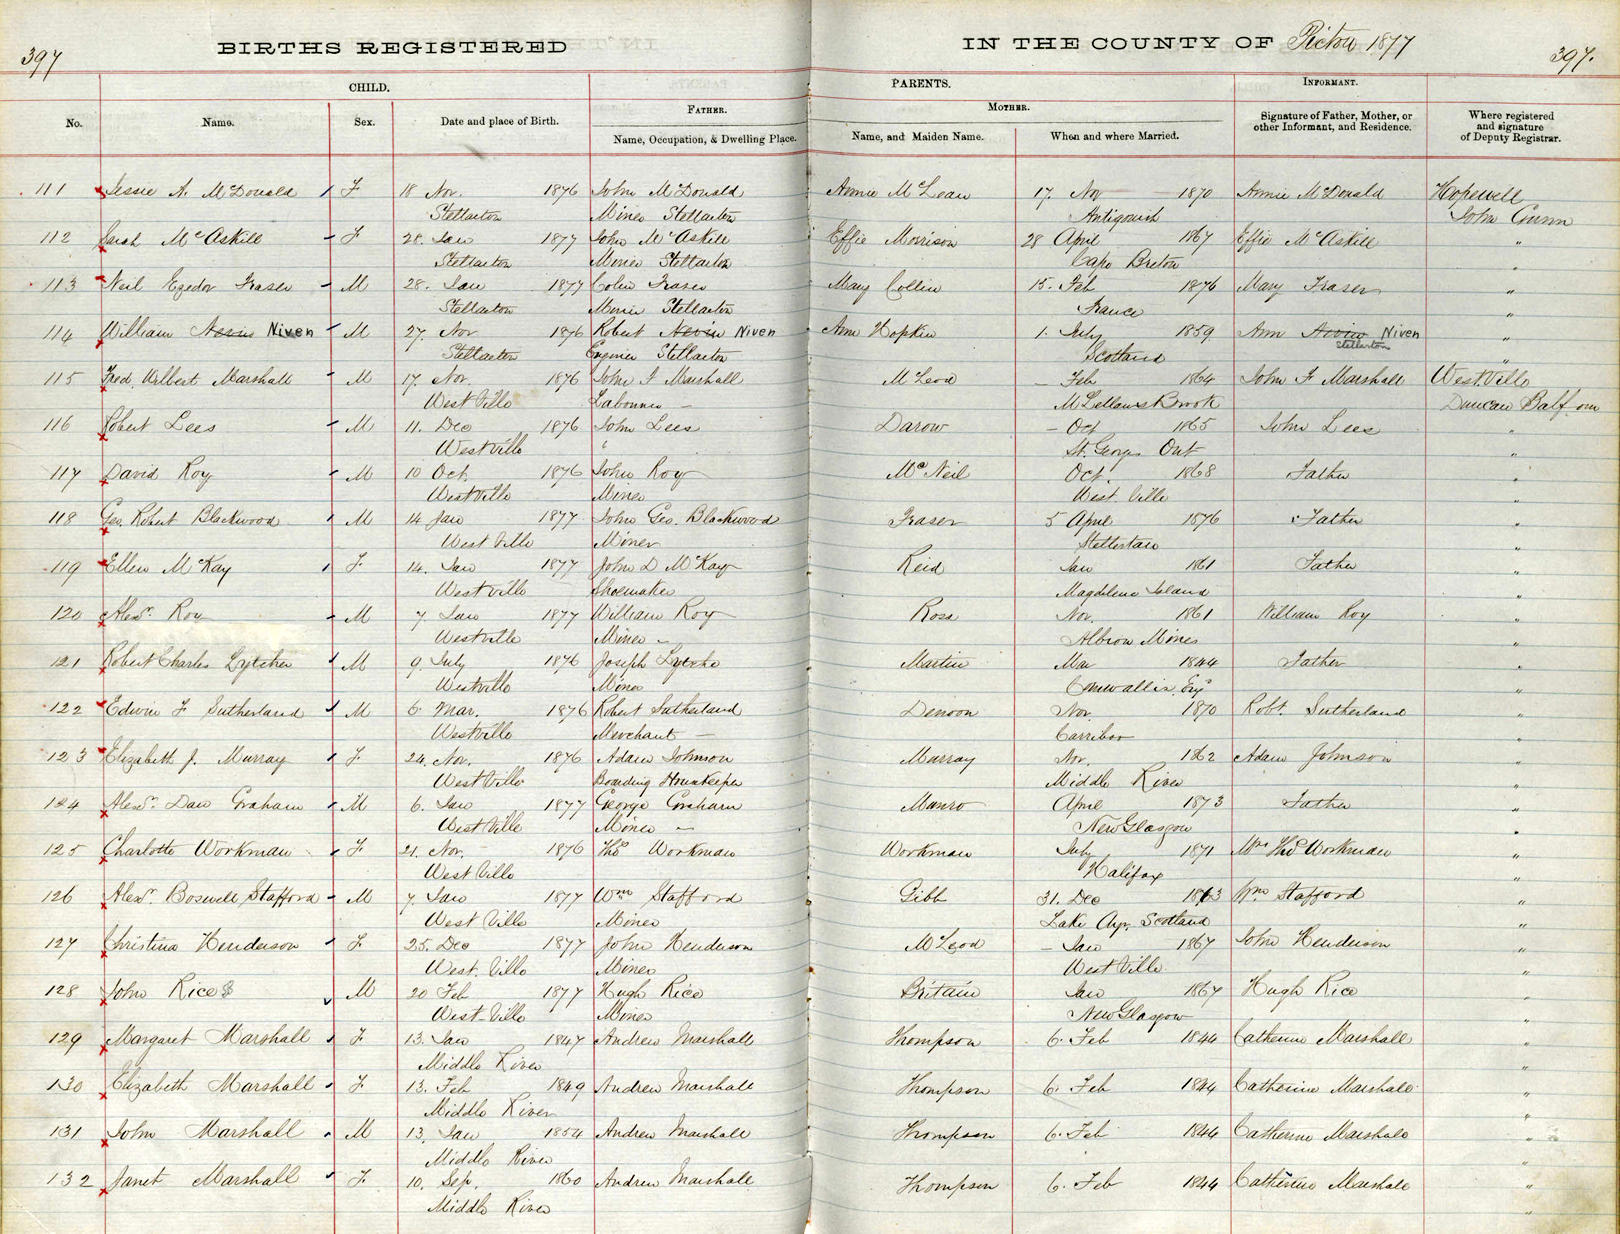 397
BIRTHS REGISTERED
IN THE COUNTY OF Pictou 1877
397.
CHILD.
PARENTS.
INFORMANT.
No.
Name.
Sex.
Date and place of Birth.
FATHER.
Name, Occupation, & Dwelling Place.
MOTHER.
Name, and Maiden Name.
When and where Married.
Signature of Father, Mother, or other Informant, and Residence.
Where registered and signature of Deputy Registrar.
111 Jessie A. McDonald F 18 Nov. 1876 John McDonald Annie McLean 17. Nov 1870 Annie McDonald Hopewell
Stellarton Miner Stellarton Antigonish John Gunn
112 Sarah McAskill F 28. Jan 1877 John McAskill Effie Morrison 28 April 1867 Effie McAskill "
Stellarton Miner Stellarton Cape Breton "
113 Neil Fraser M 28. Jan 1877 Colin Fraser Mary Collin 15. Feb 1876 Mary Fraser "
Stellarton Miner Stellarton France "
114 William Nevin Niven M 27. Nov 1876 Robert Nevin Niven Ann Hopkin 1. July 1859 Ann Nevin Niven "
Stellarton
Stellarton Engineer Stellarton Scotland "
115 Fred. Wilbert Marshall M 17. Nov. 1876 John F Marshall McLeod – Feb 1864 John F Marshall West Ville
West Ville Labourer – McLellans Brook Duncan Balfour
116 Robert Lees M 11. Dec 1876 John Lees Darow – Oct 1865 John Lees "
Westville " St. George Ont "
117 David Roy M 10 Oct. 1876 John Roy McNeil Oct. 1868 Father "
Westville Miner West Ville "
118 Geo. Robert Blackwood M 14 Jan 1877 John Geo. Blackwood Fraser 5 April 1876 Father "
West Ville Miner Stellertan "
119 Ellen McKay F 14. Jan 1877 John D McKay Reid Jan 1861 Father "
Westville Shoemaker Magdelene Island "
120 Alexr. Roy M 7 Jan 1877 William Roy Ross Nov. 1861 William Roy "
Westville Miner – Albion Mines "
121 Robert Charles Lytcher M 9 July 1876 Joseph Martin Mar 1844 Father "
Westville Miner "
122 Edwin F Sutherland M 6 Mar. 1876 Robert Sutherland Denoon Nov. 1870 Robt. Sutherland "
Westville Merchant – Carribor "
123 Elizabeth J. Murray F 24. Nov. 1876 Adam Johnson Murray Nov. 1862 Adam Johnson "
West Ville Boarding Housekeeper Middle River "
124 Alexr. Dan Graham M 6. Jan 1877 George Graham Munro April 1873 Father "
West Ville Miner – New Glasgow "
125 Charlotte Workman F 21. Nov. 1876 Thos Workman Workman July 1871 Mrs Thos Workman "
West Ville Halifax "
126 Alexr. Boswell Stafford M 7 Jan 1877 Wm Stafford Gibb 31. Dec 1863 Wm Stafford "
West Ville Miner Lake Ayr, Scotland "
127 Christina Henderson F 25. Dec 1877 John Henderson McLeod – Jan 1867 John Henderson "
West. Ville Miner West Ville "
128 John Rice M 20 Feb 1877 Hugh Rice Britain Jan 1867 Hugh Rice "
West-Ville Miner New Glasgow "
129 Margaret Marshall F 13. Jan 1847 Andrew Marshall Thompson 6. Feb 1844 Catherine Marshall "
Middle River "
130 Elizabeth Marshall F 13. Feb 1849 Andrew Marshall Thompson 6. Feb 1844 Catherine Marshall "
Middle River "
131 John Marshall M 13. Jan 1854 Andrew Marshall Thompson 6. Feb 1844 Catherine Marshall "
Middle River "
132 Janet Marshall F 10. Sep. 1860 Andrew Marshall Thompson 6. Feb 1844 Catherine Marshall "
Middle River "